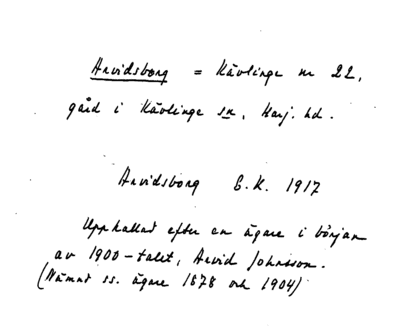 Arvidsborg = Kävlinge nr 22,
gård i Kävlinge sn, Harj. hd.
Arvidsborg E.K. 1917
Uppkallad efter en ägare i början
av 1900-talet, Arvid Johnsson.
(Nämnd ss. ägare 1878 och 1904)